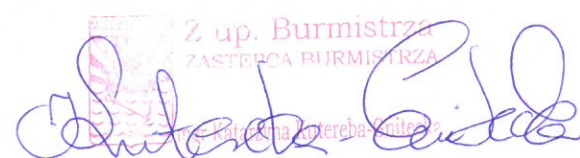 Z up. Burmistrza
ZASTĘPCA BURMISTRZA
mgr Katarzyna Kutereba-Gniteska